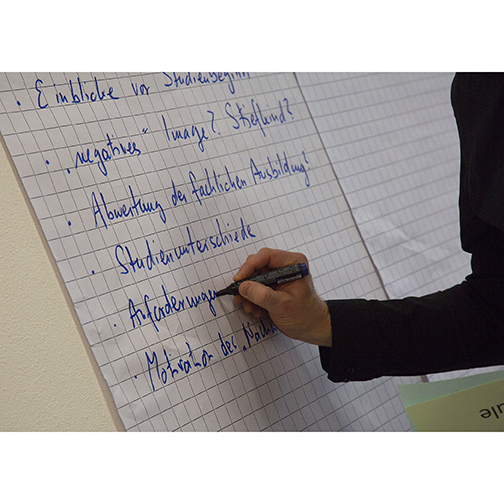 • Einblicke vor Studienbeginn
• „negatives“ Image? Stiefkind?
• Abwertung der fachlichen Ausbildung?
• Studienunterschiede
• Anforderungen
• Motivation des „Nach
ule